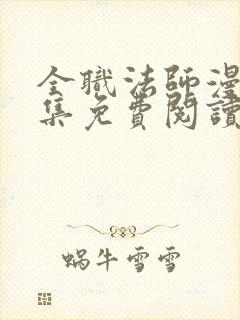 全職法師漫
集免費閱讀
蝸牛雪雪